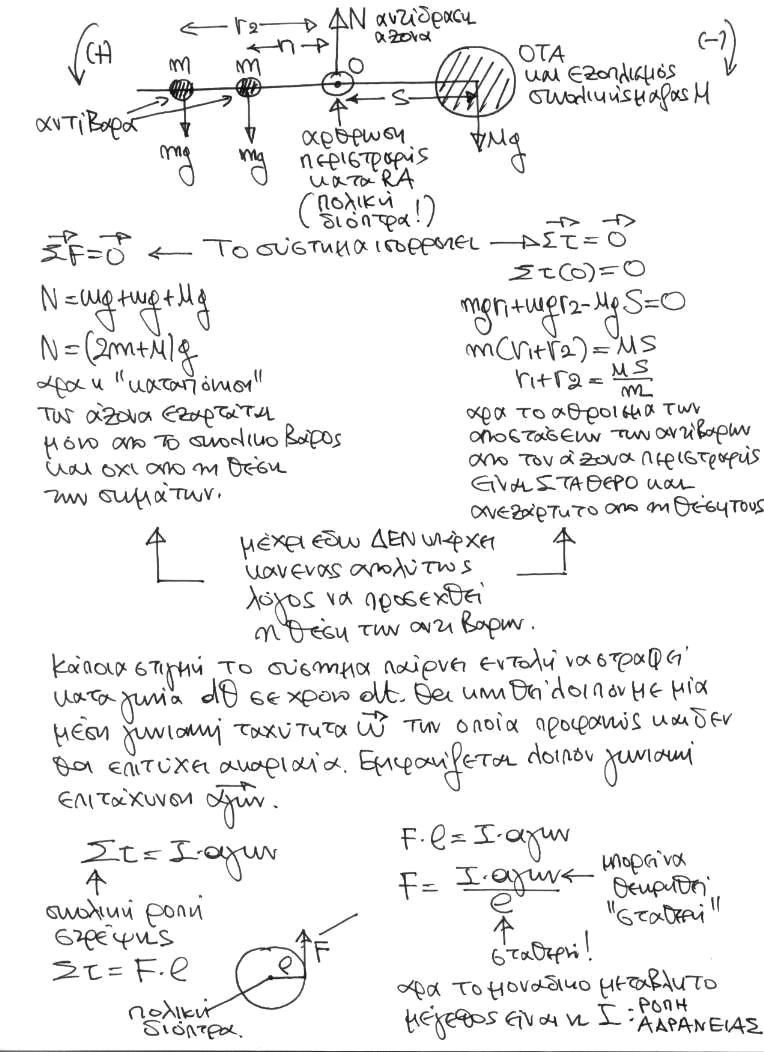 r2
N αντίδραση
άξονα
(+)
(-)
m m
r1
O
S
ΟΤΑ
και εξοπλισμός
συνολικής μάζας Μ
αντίβαρα
mg mg
Mg
άρθρωση
περιστροφής
κατα RA
(πολική
διόπτρα!)
ΣF=0 ← Το σύστημα ισορροπεί → Στ=0
Στ(0)=0
N=mg+mg+Mg
N=(2m+M)g
άρα η "καταπόνηση"
του άξονα εξαρτάται
μόνο απο το συνολικο βάρος
και οχι απο τη θέση
των σωμάτων.
mgr1+mgr2-MgS=0
m(r1+r2)=MS
r1+r2=MS/m
αρα το αθροισμα των
αποστάσεων των αντιβαρων
απο τον άξονα περιστροφής
είναι ΣΤΑΘΕΡΟ και
ανεξάρτητο απο τη θέση τους
μέχρι εδω ΔΕΝ υπάρχει
κανενας απολύτως
λόγος να προσεχθεί
η θέση των αντιβαρων.
Κάποια στιγμή το σύστημα παίρνει εντολή να στραφεί
κατα γωνία dθ σε χρονο dt. Θα κινηθεί λοιπον με μία
μέση γωνιακή ταχύτητα ω την οποία προφανώς και δεν
θα επιτύχει ακαριαία. Εμφανίζεται λοιπόν γωνιακή
επιτάχυνση αγων.
Στ=Ι·αγων
συνολική ροπή
στρέψης
Στ=F·ℓ
F
ℓ
πολική
διόπτρα.
F·ℓ=Ι·αγων
F=Ι·αγων/ℓ
μπορεί να
θεωρηθεί
"σταθερή"
σταθερή!
αρα το μοναδικο μεταβλητο
μέγεθος είναι η Ι: ΡΟΠΗ
ΑΔΡΑΝΕΙΑΣ